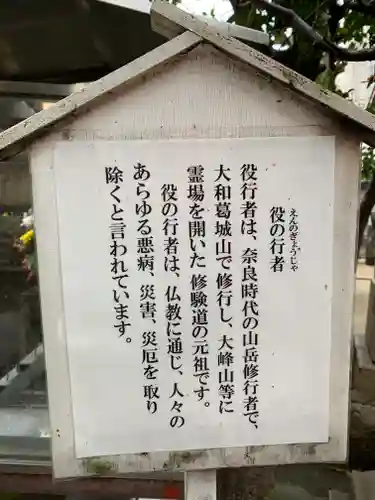 役の行者
えんのぎょうじゃ
役行者は、奈良時代の山岳修行者で、
大和葛城山で修行し、大峰山等に
霊場を開いた修験道の元祖です。
役の行者は、仏教に通じ、人々の
あらゆる悪病、災害、災厄を取り
除くと言われています。